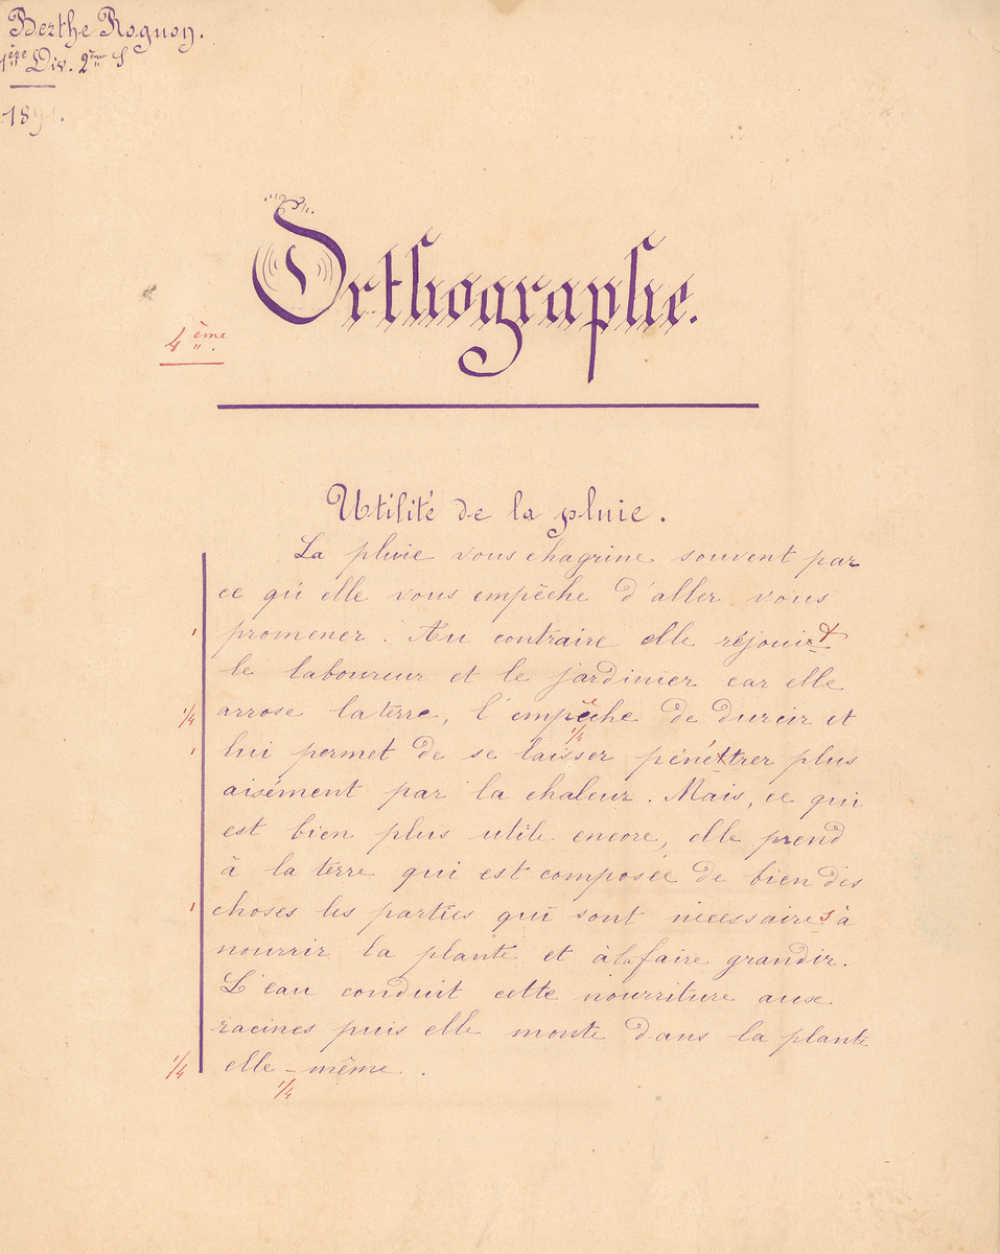 Berthe Rognon.
1ère Div. 2ème S
189.
Orthographe.
4ème
Utilité de la pluie.
La pluie vous chagrine souvent par
ce qu'elle vous empêche d'aller vous
1 promener. Au contraire elle réjouit
le laboureur et le jardinier car elle
1/4 arrose la terre, l'empêche de durcir et
1/4
1 lui permet de se laisser pénétrer plus
aisément par la chaleur. Mais, ce qui
est bien plus utile encore, elle prend
à la terre qui est composée de bien des
1 choses les parties qui sont nécessaires à
nourrir la plante et à la faire grandir.
L'eau conduit cette nourriture aux
racines puis elle monte dans la plante
1/4 elle-même.
1/4